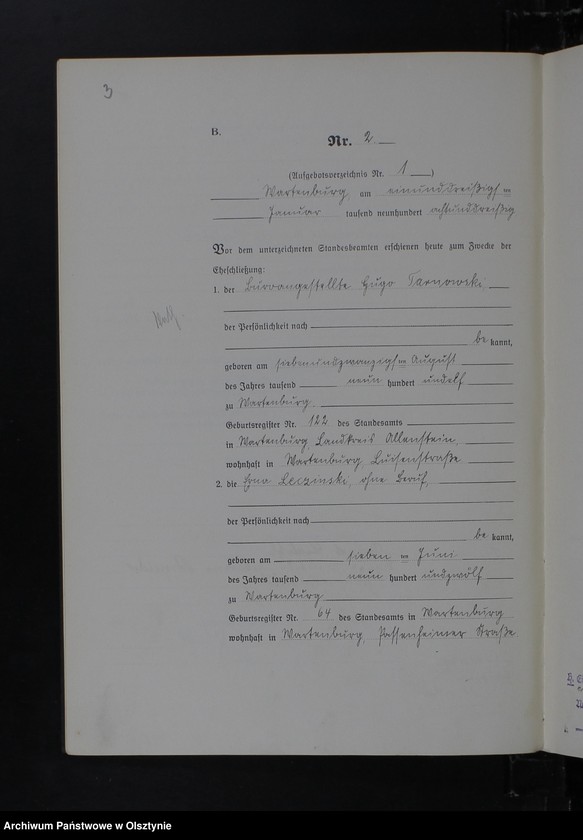 3
B.
Nr. 2
(Aufgebotsverzeichnis Nr. 1)
Wartenburg am einunddreißigsten
Januar tausend neunhundert achtunddreißig
Vor dem unterzeichneten Standesbeamten erschienen heute zum Zwecke der
Eheschließung:
1. der Büroangestellte Hugo Tarnowski
der Persönlichkeit nach
be kannt,
geboren am siebenundzwanzigsten August
des Jahres tausend neun hundert undelf
zu Wartenburg
Geburtsregister Nr. 122 des Standesamts
in Wartenburg, Landkreis Allenstein,
wohnhaft in Wartenburg, Luisenstraße
2. die Erna Leczinski, ohne Beruf,
der Persönlichkeit nach
be kannt,
geboren am sieben ten Juni
des Jahres tausend neun hundert undzwölf
zu Wartenburg
Geburtsregister Nr. 64 des Standesamts in Wartenburg
wohnhaft in Wartenburg, Passenheimer Straße
Archiwum Państwowe w Olsztynie